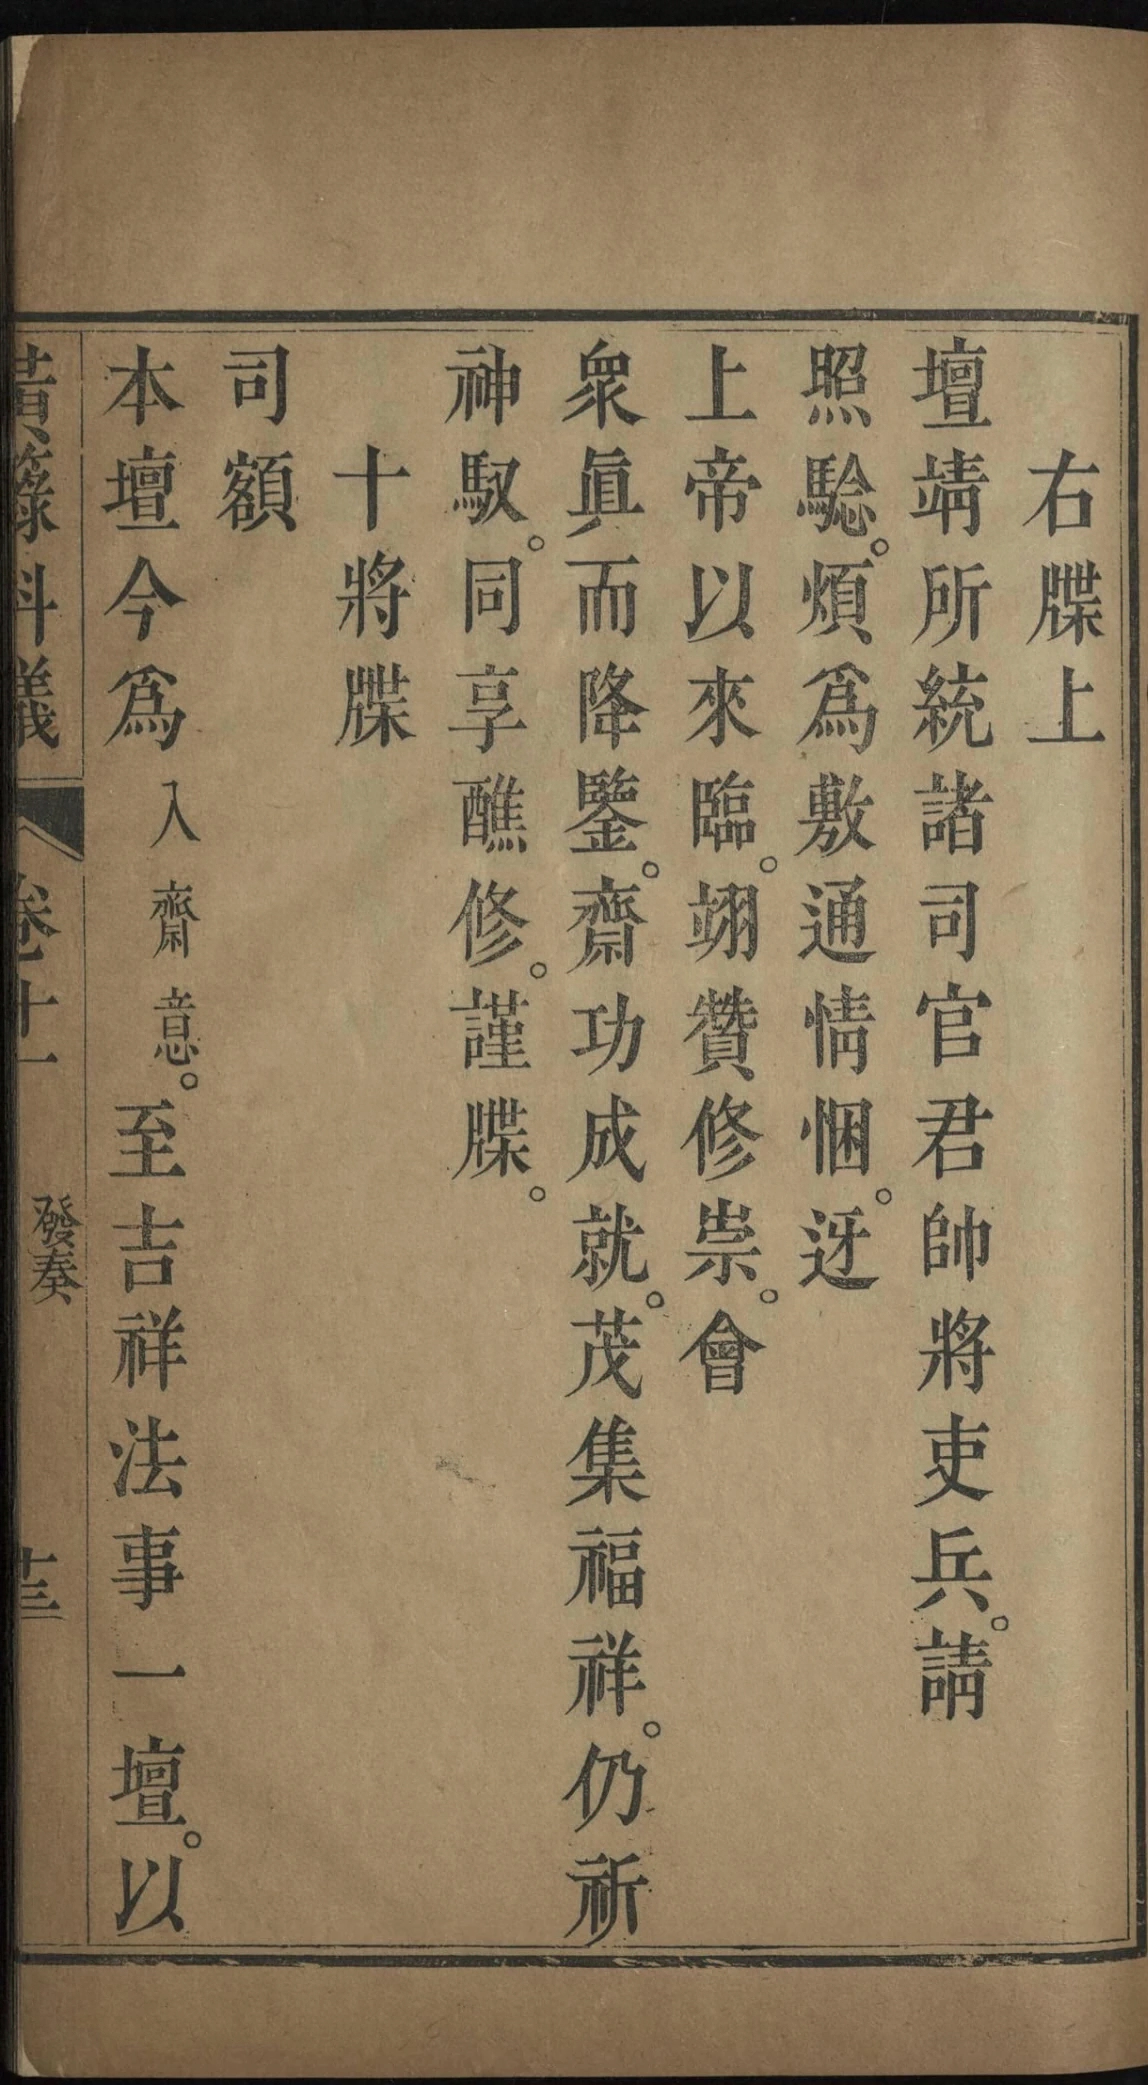 右牒上
壇靖所統諸司官君帥將吏兵。請
照驗。煩爲敷通情悃。迓
上帝以來臨。翊贊修崇。會
衆眞而降鑒。齋功成就。茂集福祥。仍祈
神馭。同享醮修。謹牒。
十將牒
司額
本壇今爲入齋意。至吉祥法事一壇。以
黃籙科儀 卷十一 發奏